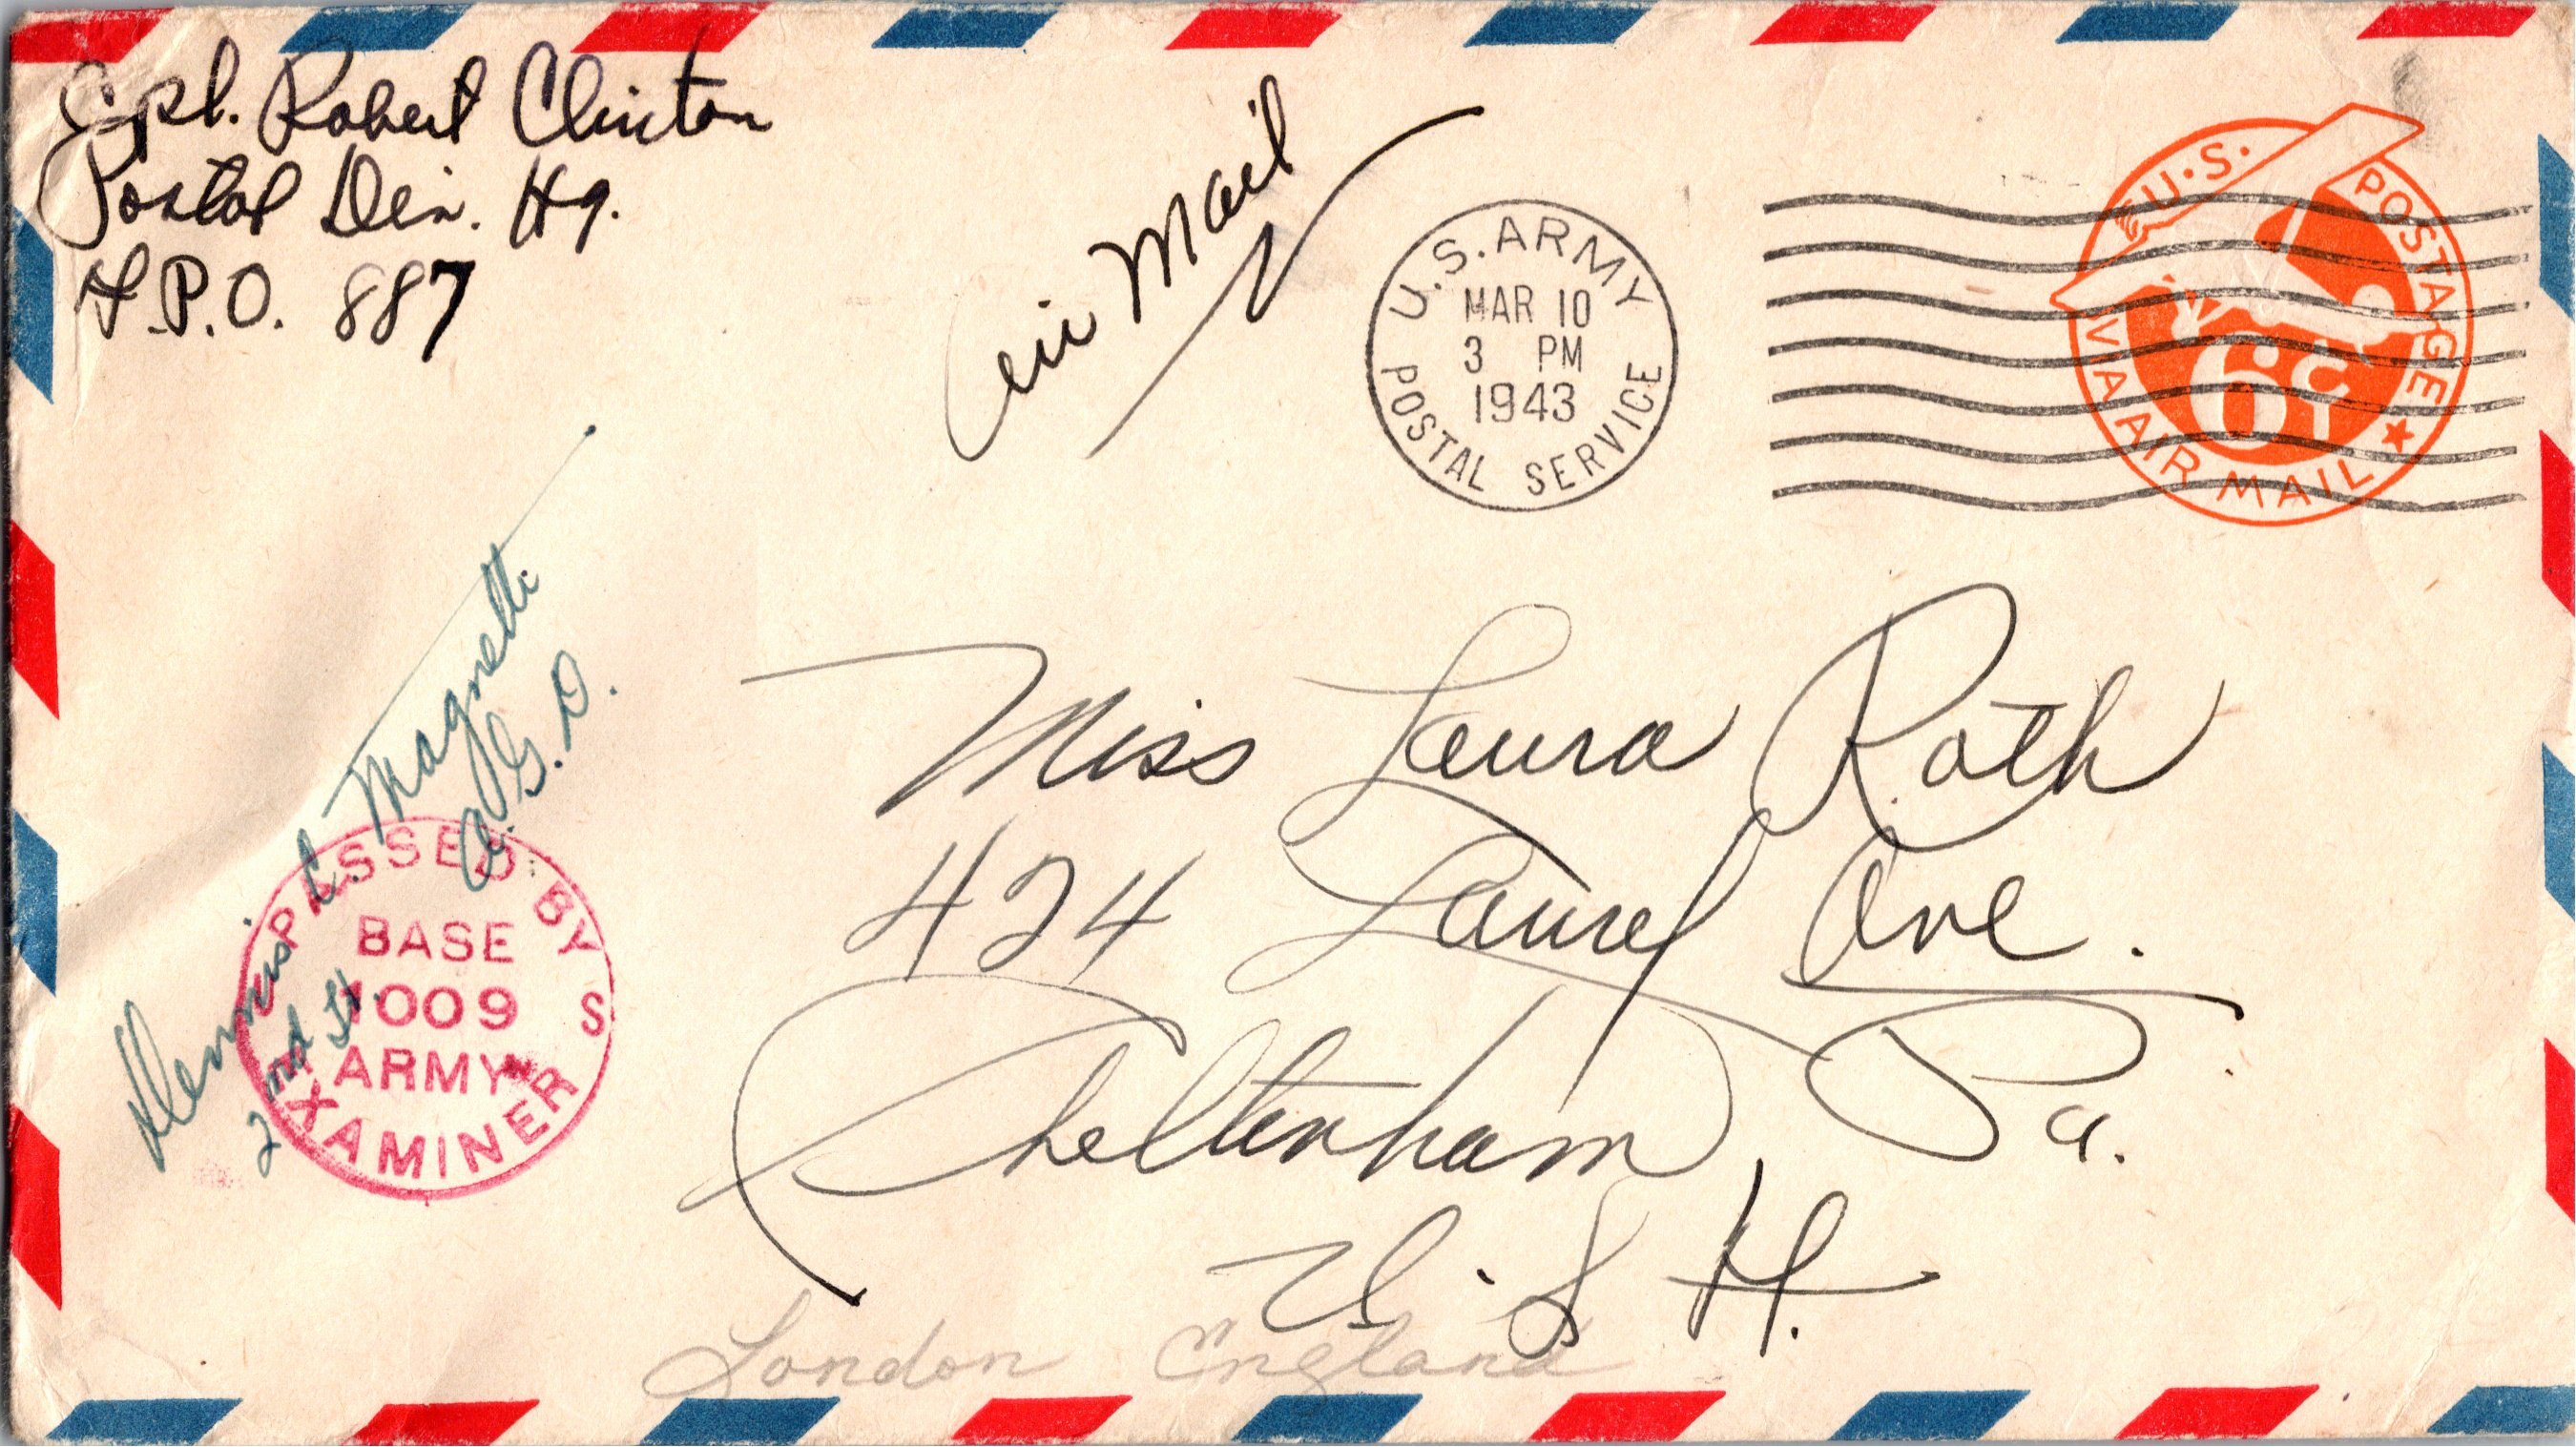 Cpl. Robert Clinton
Postal Div. Hq.
A.P.O. 887
Air Mail
U.S. ARMY
MAR 10
3 PM
1943
POSTAL SERVICE
U.S. POSTAGE
6¢
VIA AIR MAIL
Dennis C. Magnetti
2nd Lt. A.G.D.
PASSED BY
BASE
1009
ARMY
EXAMINER
S
Miss Laura Roth
424 Laurel Ave.
Cheltenham, Pa.
U.S.A.
London England